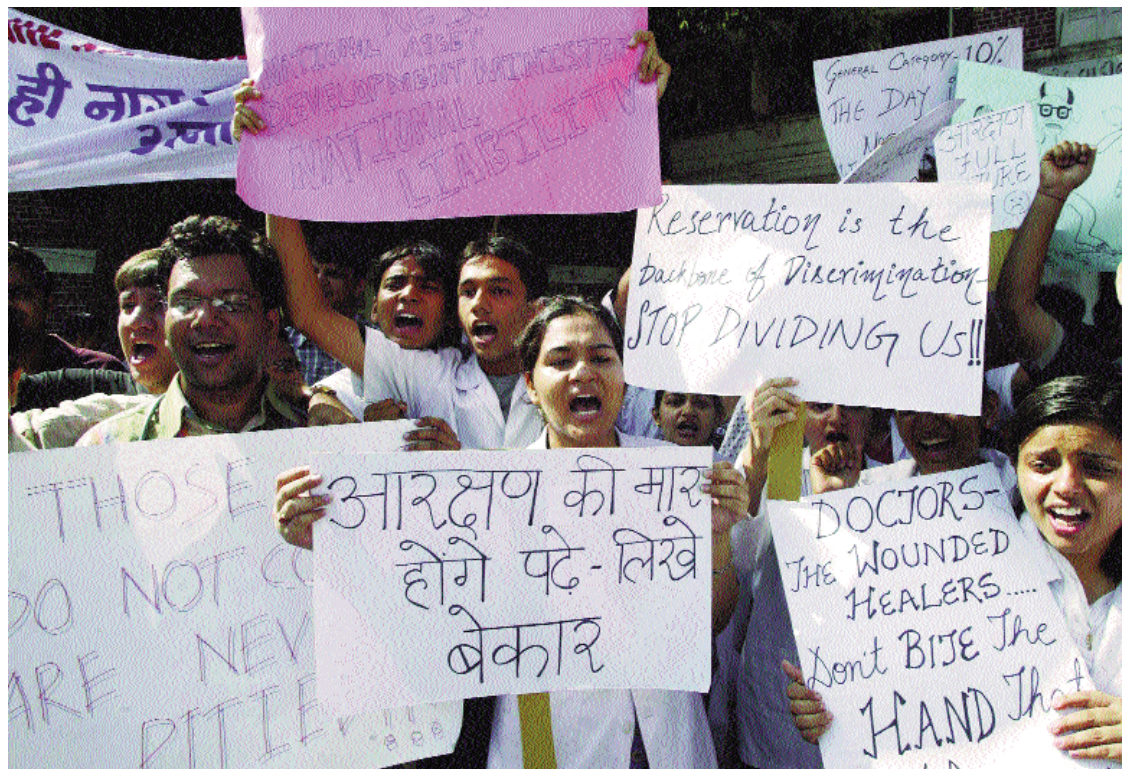 ही
NATIONAL ASSET
DEVELOPMENT MINISTER
NATIONAL
LIABILITY
GENERAL CATEGORY-10%
THE DAY
आरक्षण
FULL
Reservation is the
backbone of Discrimination-
STOP DIVIDING US!!
THOSE
DO NOT
ARE NEV
आरक्षण की मार
होंगे पढ़े-लिखे
बेकार
DOCTORS-
THE WOUNDED
HEALERS.....
Don't BITE The
HAND That